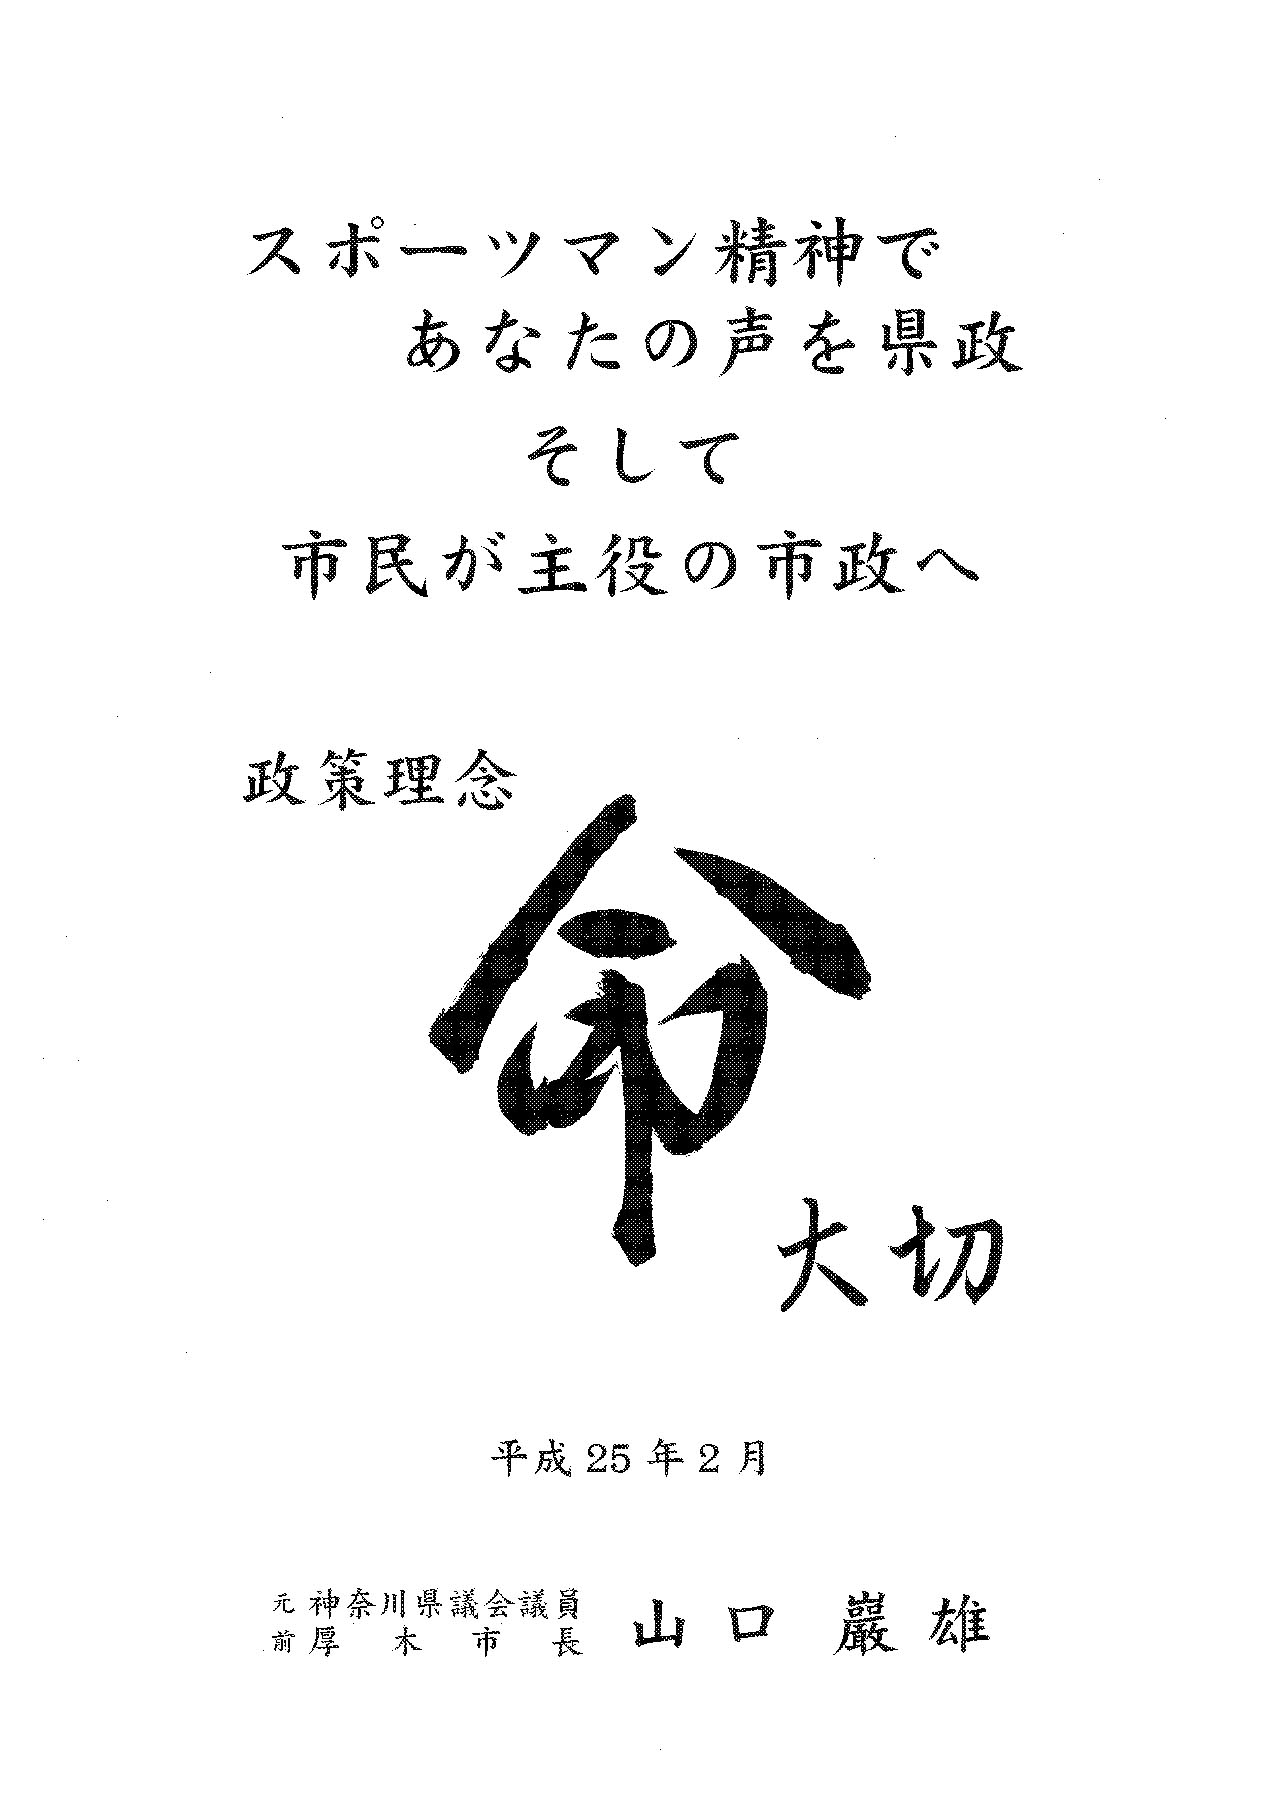 スポーツマン精神で
あなたの声を県政
そして
市民が主役の市政へ
政策理念
命
大切
平成 25 年 2 月
元 神奈川県議会議員
前 厚木市長
山口 巖雄